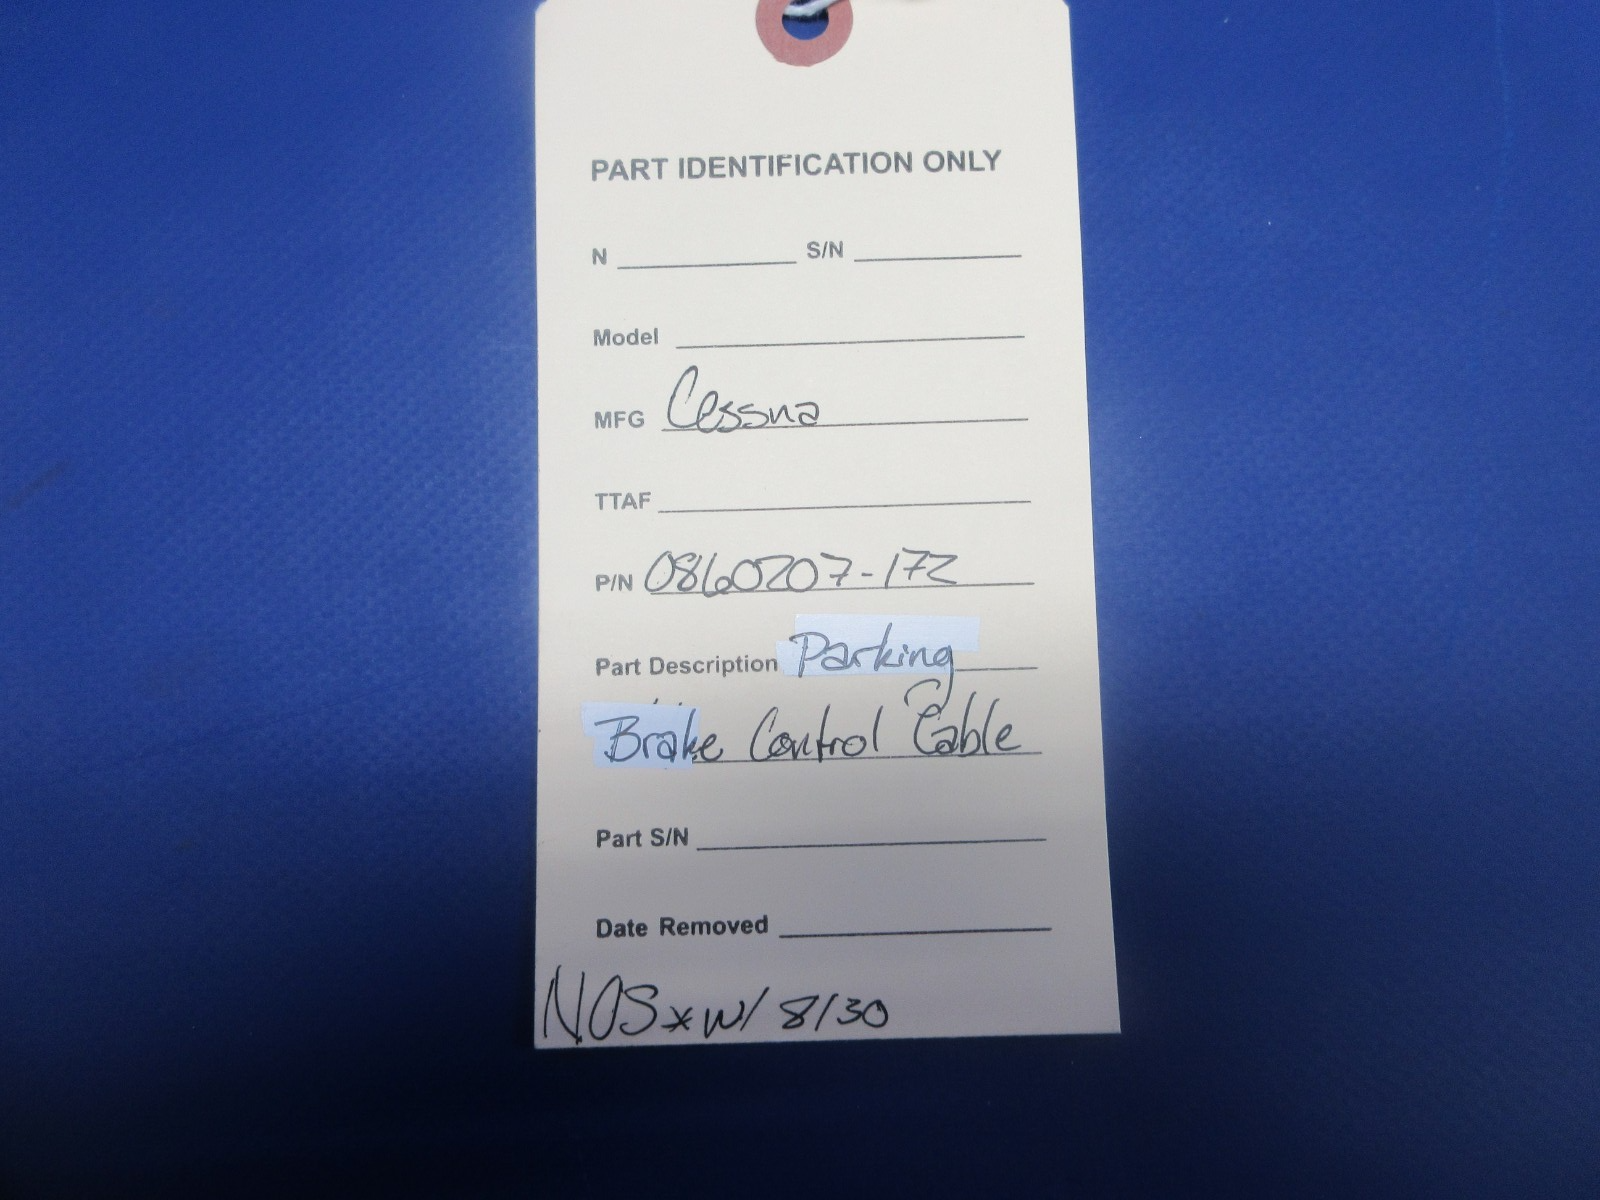 PART IDENTIFICATION ONLY
N S/N
Model
MFG Cessna
TTAF
P/N 0860207-172
Part Description Parking
Brake Control Cable
Part S/N
Date Removed
NOS * W/ 8130